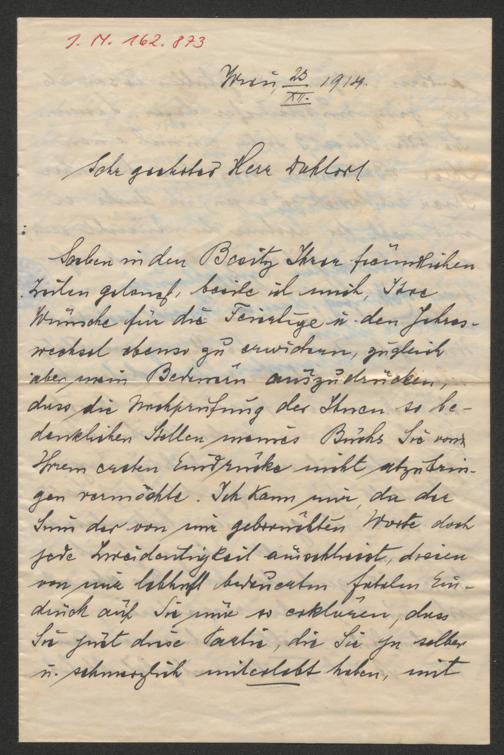 J. N. 162.873
Wien, 23/XII. 1914.
Sehr geehrter Herr Doktor!
Soeben in den Besitz Ihrer freundlichen
Zeilen gelangt, beeile ich mich, Ihre
Wünsche für die Feiertage u. den Jahres-
wechsel ebenso zu erwidern, zugleich
aber mein Bedauern auszudrücken,
dass die Nachprüfung der Ihnen so be-
denklichen Stellen meines Buchs Sie von
Ihrem ersten Eindrucke nicht abzubrin-
gen vermochte. Ich kann mir, da der
Sinn der von mir gebrauchten Worte doch
jede Zweideutigkeit ausschliesst, diesen
von mir lebhaft bedauerten fatalen Ein-
druck auf Sie nur so erklären, dass
Sie just diese Partie, die Sie ja selber
u. schmerzlich miterlebt haben, mit